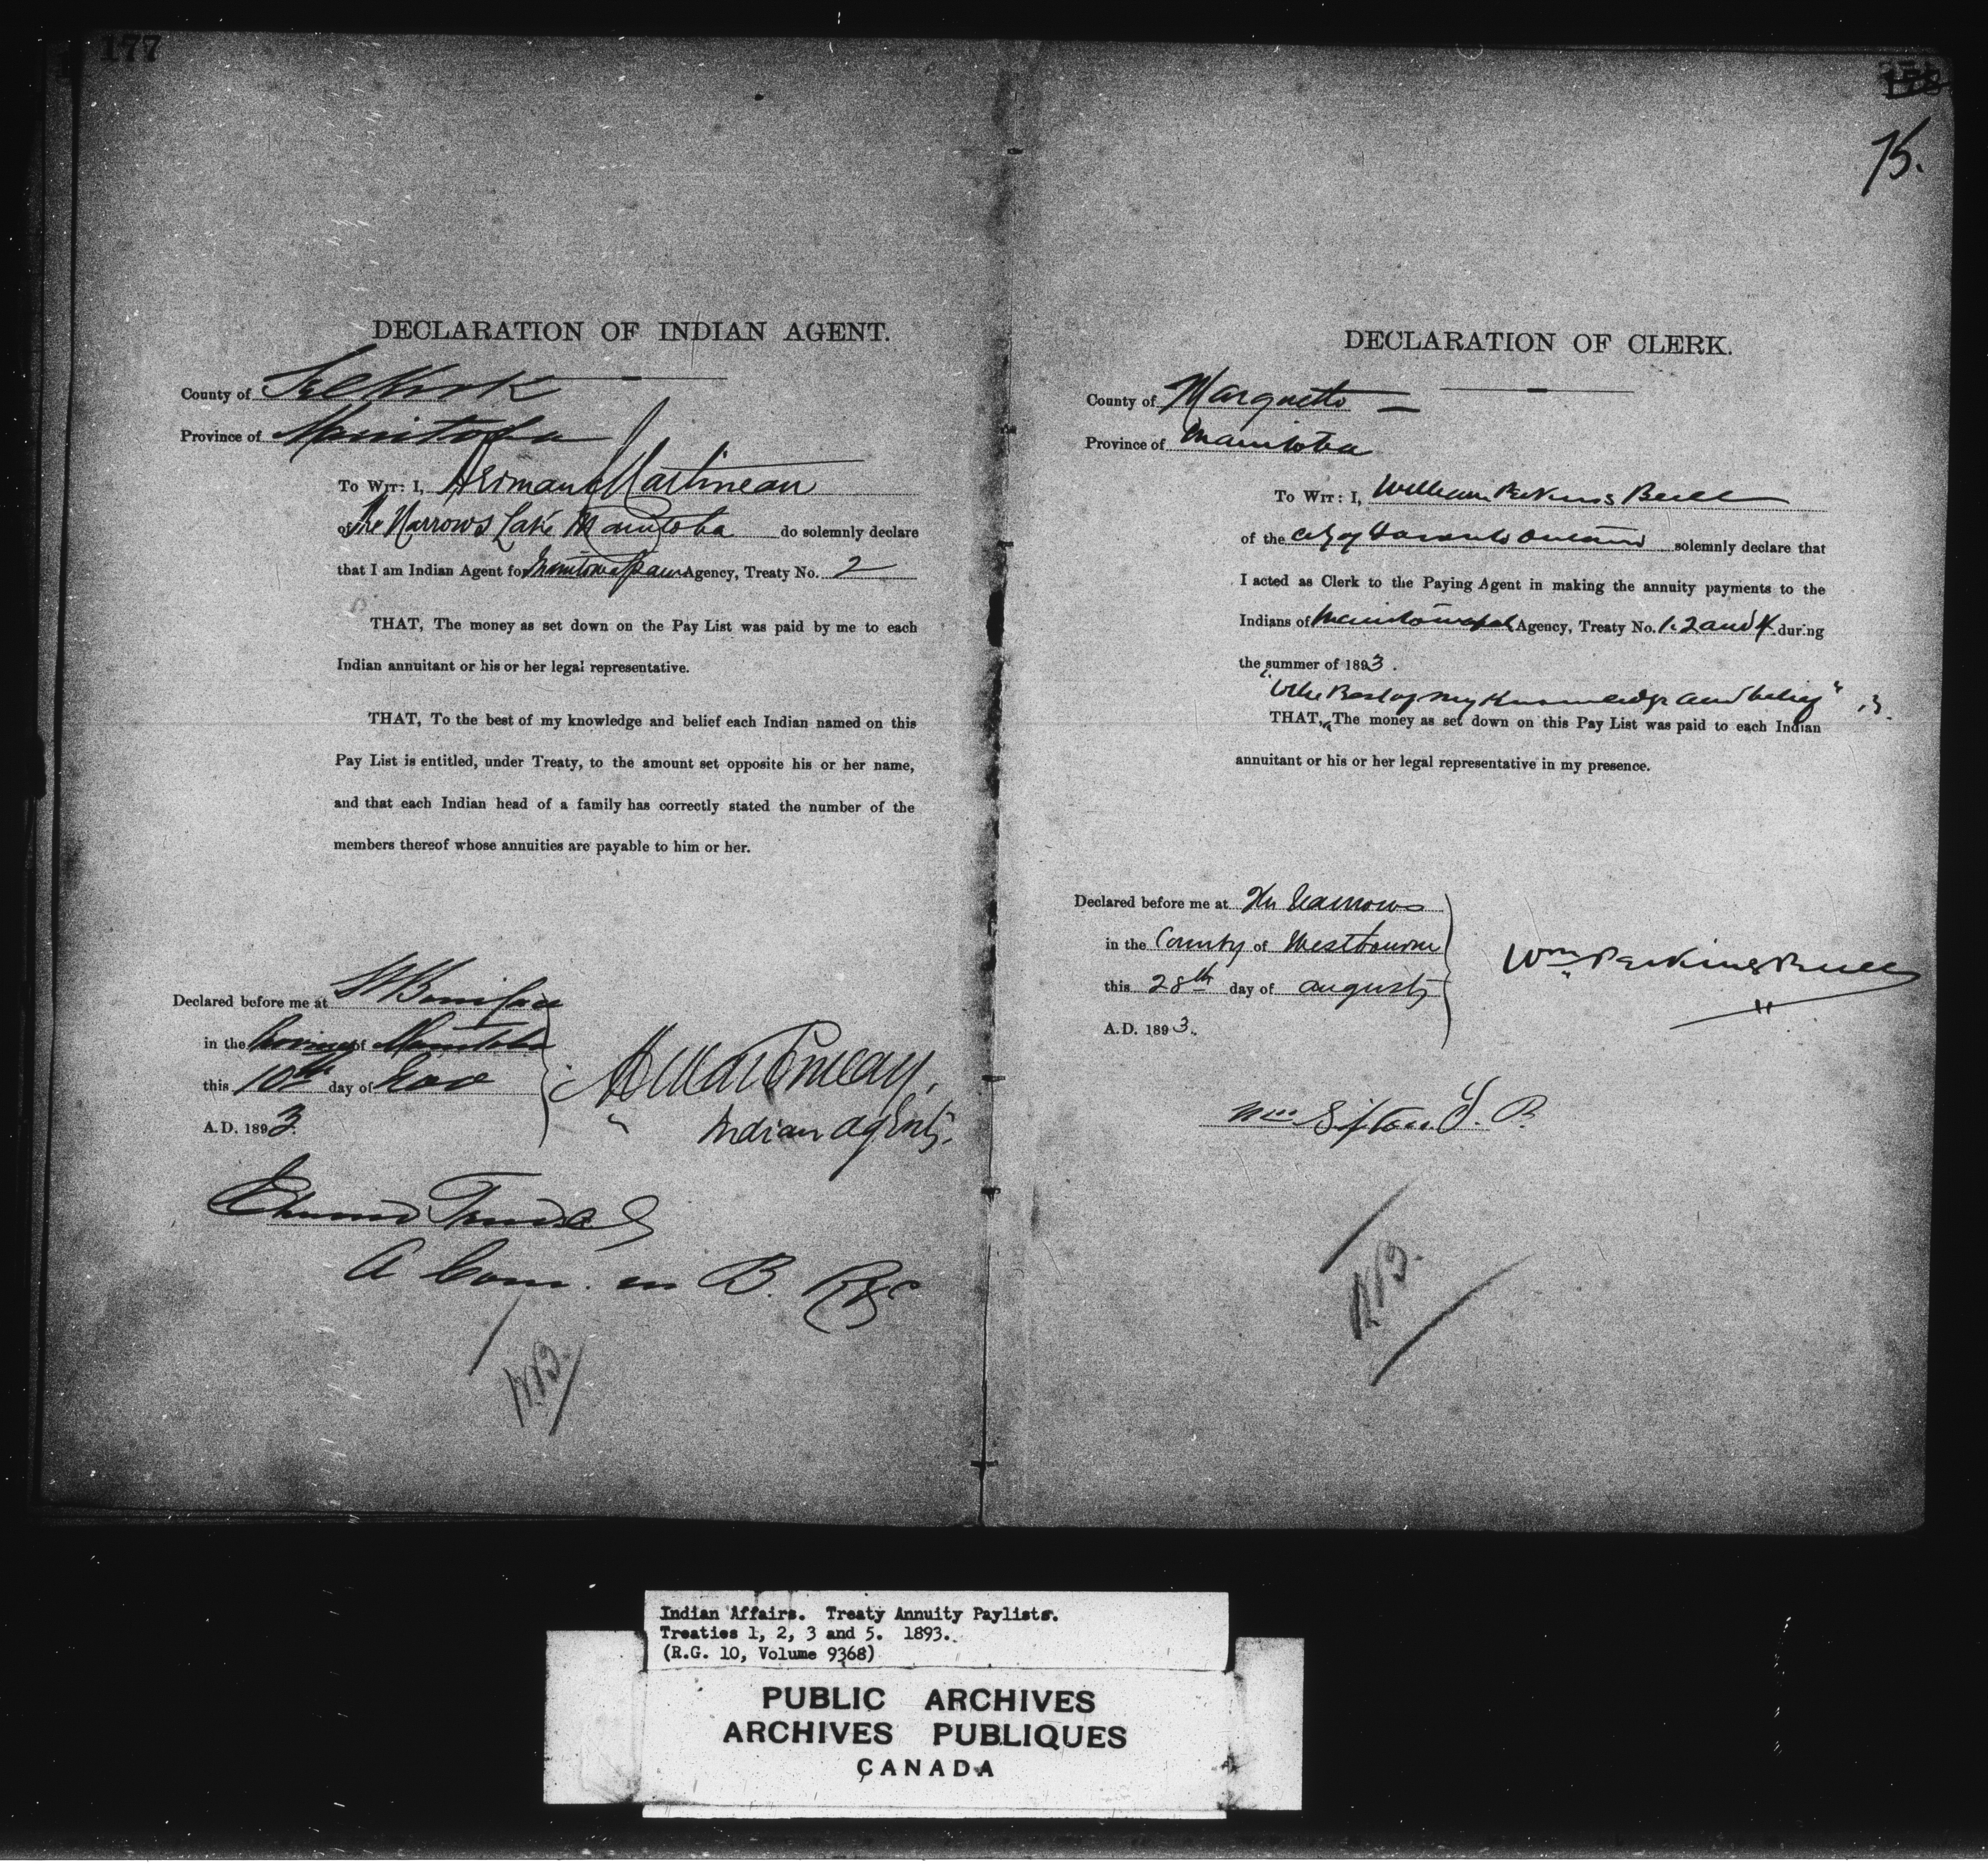 177
DECLARATION OF INDIAN AGENT.
County of Selkirk
Province of Manitoba
To Wit: I, Herman Martineau
of The Narrows Lake Manitoba do solemnly declare
that I am Indian Agent for Manitowapaw Agency, Treaty No. 2
THAT, The money as set down on the Pay List was paid by me to each
Indian annuitant or his or her legal representative.
THAT, To the best of my knowledge and belief each Indian named on this
Pay List is entitled, under Treaty, to the amount set opposite his or her name,
and that each Indian head of a family has correctly stated the number of the
members thereof whose annuities are payable to him or her.
Declared before me at St Boniface
in the Province of Manitoba
this 10th day of Nov
A.D. 1893.
Martineau,
Indian Agent.
Edmund Trudel
A Com. in B. R &c
75.
DECLARATION OF CLERK.
County of Marquette
Province of Manitoba
To Wit: I, William Perkins Bull
of the City of Toronto Ontario solemnly declare that
I acted as Clerk to the Paying Agent in making the annuity payments to the
Indians of Agency, Treaty No. 1. 2 and 4 during
the summer of 1893.
"to the Best of my Knowledge and belief"
THAT, The money as set down on this Pay List was paid to each Indian
annuitant or his or her legal representative in my presence.
Declared before me at The Narrows
in the County of Westbourne
this 28th day of August
A.D. 1893.
Wm Perkins Bull
Wm Sifton J. P.
Indian Affairs. Treaty Annuity Paylists.
Treaties 1, 2, 3 and 5. 1893.
(R.G. 10, Volume 9368)
PUBLIC ARCHIVES
ARCHIVES PUBLIQUES
CANADA